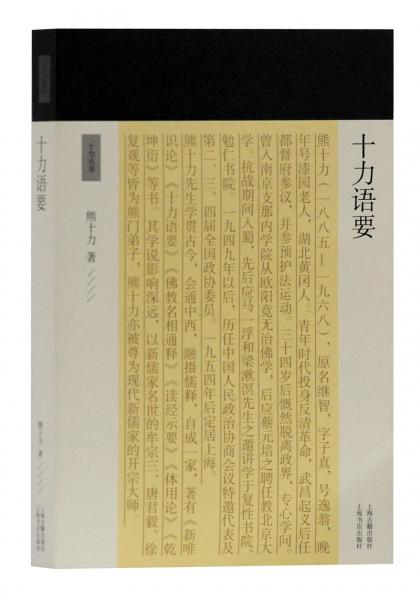 十力语要
上海古籍出版社
上海书店出版社
熊十力(一八八五—一九六八),原名继智,字子真,号逸翁,晚
年号漆园老人,湖北黄冈人。青年时代投身反清革命,武昌起义后任
都督府参议,并参预护法运动。三十四岁后慨然脱离政界,专心学问。
曾入南京支那内学院从欧阳竟无治佛学,后应蔡元培之聘任教北京大
学。抗战期间入蜀,先后应马一浮和梁漱溟先生之邀讲学于复性书院、
勉仁书院。一九四九年以后,历任中国人民政治协商会议特邀代表及
第二、三、四届全国政协委员。一九五四年后定居上海。
熊十力先生学贯古今,会通中西,融摄儒释,自成一家,著有《新唯
识论》《十力语要》《佛教名相通释》《读经示要》《体用论》《乾
坤衍》等书,其学说影响深远,以新儒家名世的牟宗三、唐君毅、徐
复观等皆为熊门弟子,熊十力亦被尊为现代新儒家的开宗大师。
十力丛书
熊十力 著
十力语要
熊十力 著
上海古籍出版社
上海书店出版社